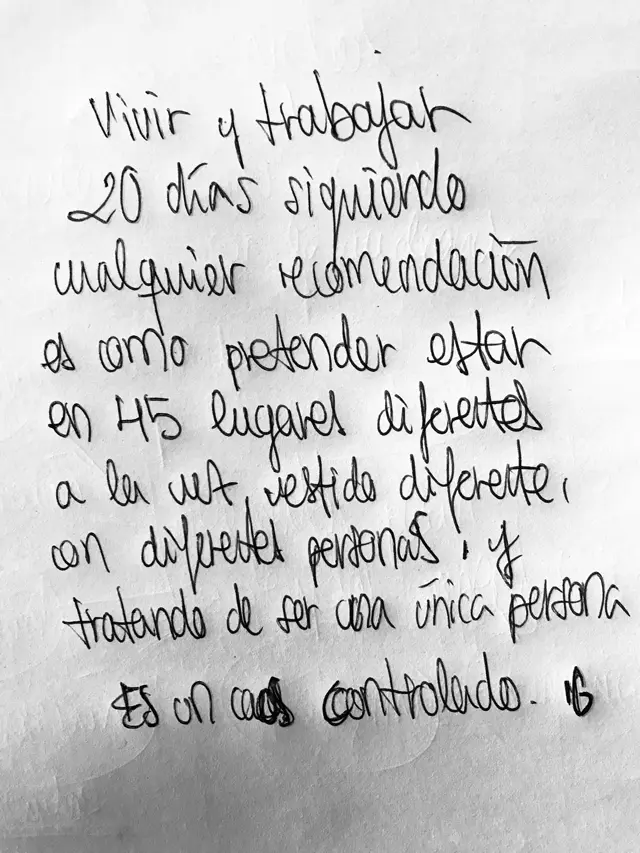 Vivir y trabajar
20 días siguiendo
cualquier recomendación
es como pretender estar
en 45 lugares diferentes
a la vez, vestido diferente,
con diferentes personas, y
tratando de ser una única persona
Es un caos controlado.